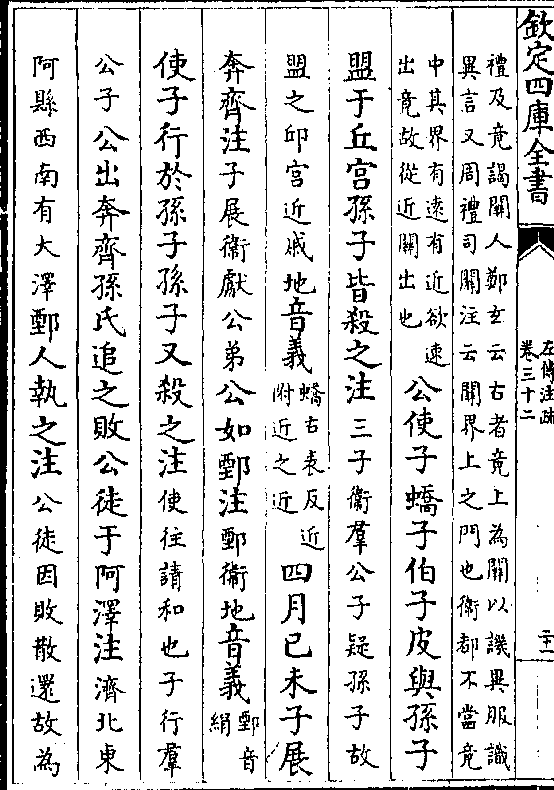 欽定四庫全書
左傳注疏
卷三十二
二十一
禮及竟謁關人鄭玄云古者竟上為關以譏異服識
異言又周禮司關注云關界上之門也衛都不當竟
中其界有遠有近欲速
出竟故從近關出也
公使子蟜子伯子皮與孫子
盟于丘宮孫子皆殺之注三子衛羣公子疑孫子故
盟之邱宮近戚地音義
蟜右表反近
附近之近
四月已未子展
奔齊注子展衛獻公弟公如鄄注鄄衛地音義
鄄音
絹
使子行於孫子孫子又殺之注使往請和也子行羣
公子公出奔齊孫氏追之敗公徒于阿澤注濟北東
阿縣西南有大澤鄄人執之注公徒因敗散還故為